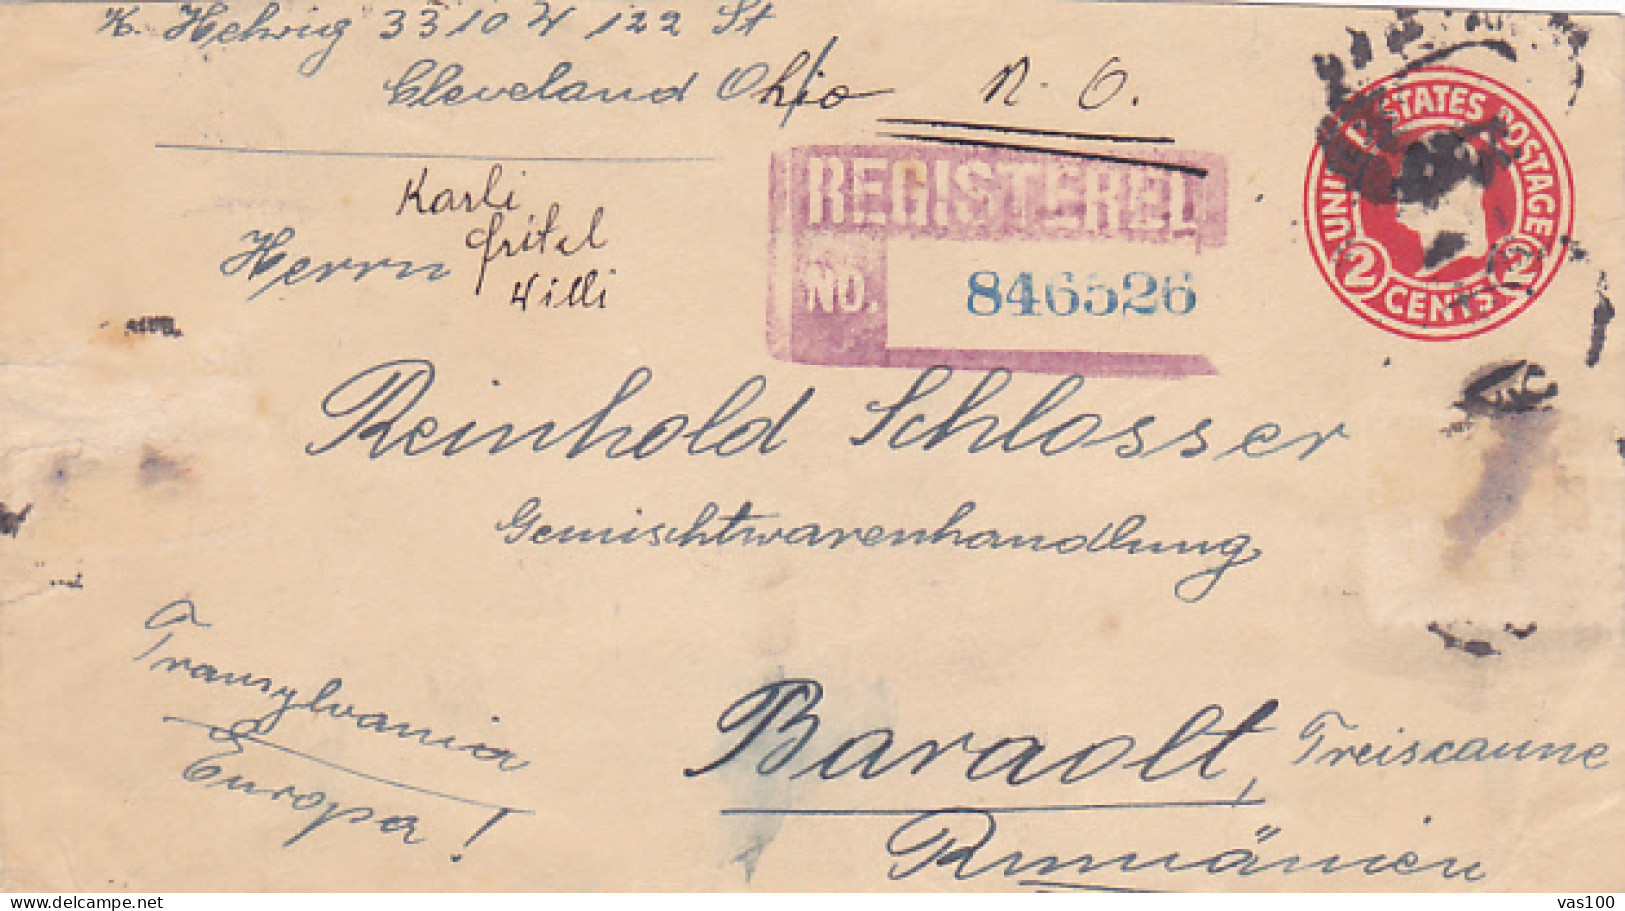 K. Helwig 3310 W 122 St
Cleveland Ohio N. O.
UNITED STATES POSTAGE
2 CENTS 2
REGISTERED
NO. 846526
Karli
Gritel
Willi
Herrn
Reinhold Schlosser
Gemischtwarenhandlung
Transylvania
Europa!
Baraolt, Treiscaune
Rumänien
Delcampe.net
vas100